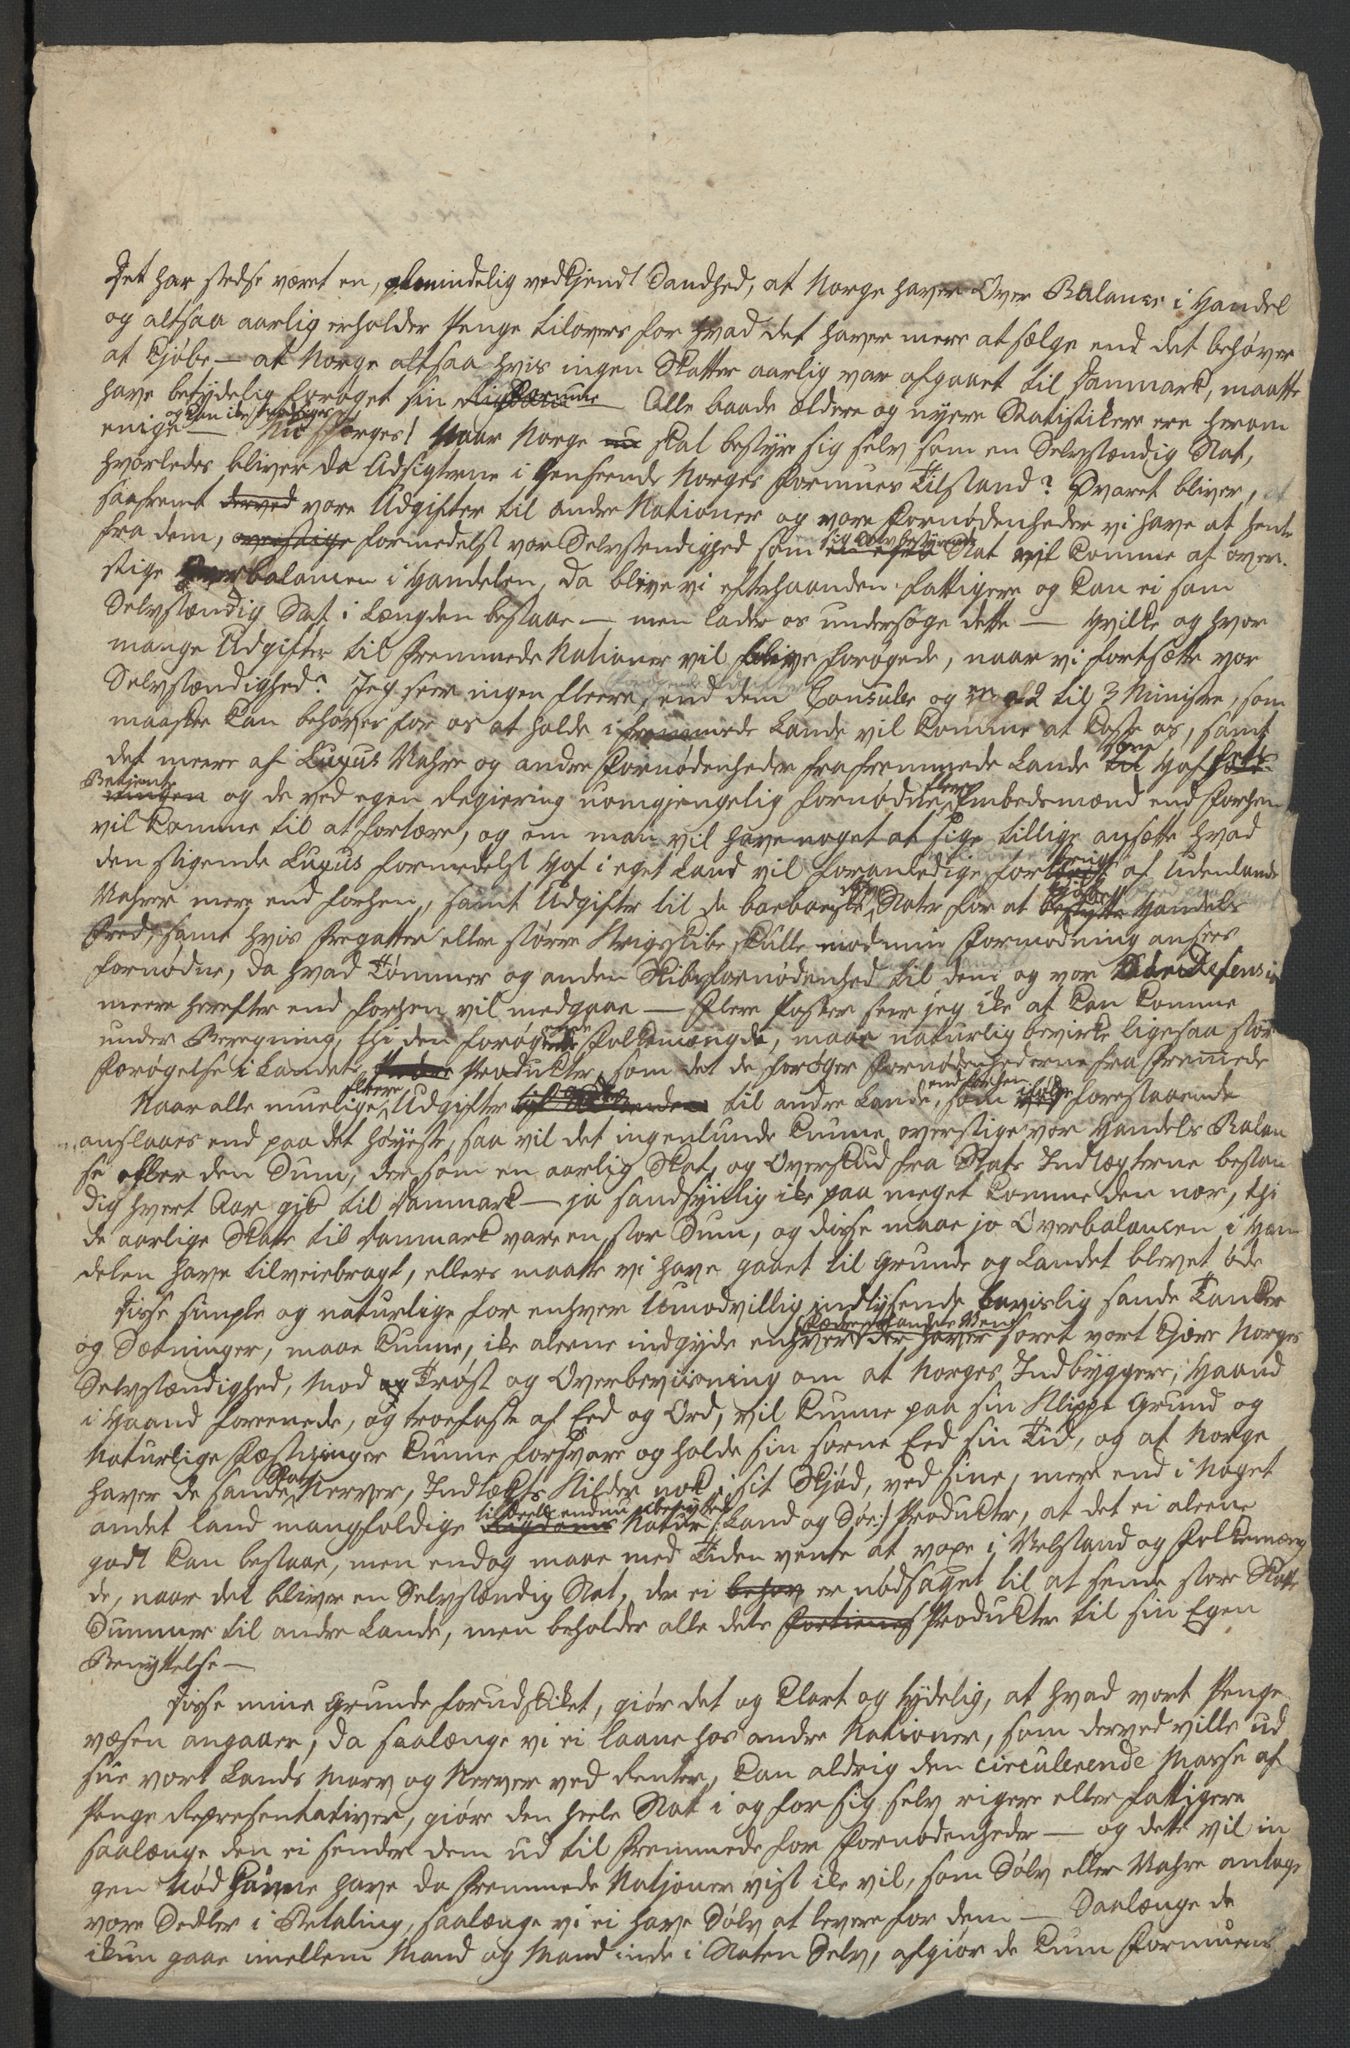 Det har stedse været en, almindelig vedkjendt Sandhed, at Norge haver Over Balance i Handel
og altsaa aarlig erholder Penge tilovers for hvad det haver mere at sælge end det behøver
at kjøbe — at Norge altsaa hvis ingen Skatter aarlig var afgaaet til Danmark, maatte
have betydelig forøget sin Formue — Alle baade ældere og nyere Statistikere ere herom
enige — og kan ike modsiges Nu spørges! Naar Norge nu skal bestyre sig selv som en Selvstændig Stat,
hvorledes bliver da Udsigterne i Henseende Norges Formues Tilstand? Svaret bliver, at
saafremt derved vore Udgifter til andre Nationer og vore Fornødenheder vi have at hente
fra dem, overstige formedelst vor Selvstendighed som sig selv bestyrende Stat vil komme at over-
stige Overbalancen i Handelen, da blive vi efterhaanden fattigere og kan ei som
Selvstændig Stat i Længden bestaae — men lader os undersøge dette — Hvilke og hvor
mange Udgifter til fremmede Nationer vil blive forøgede, naar vi fortsætte vor
Selvstændighed? Jeg seer ingen fleere, end dem Consuler og 2 til 3 Ministre, som
maaskee kan behøves for os at holde i fremmede Lande vil komme at koste os, samt
det meere af Luxus Vahre og andre Fornødenheder fra fremmede Lande vore Hof
Betjente og de ved egen Regiering uomgjengelig fornødne flere Embedsmænd end forhen
vil komme til at fortære, og om man vil have noget at sige tillige ansætte hvad
den stigende Luxus formedelst Hof i eget Land vil foranledige forbrugt af Udenlandske
Vahrer mere end forhen, samt Udgifter til de barbariske Stater for at kjøbe Handels
Fred, samt hvis Fregatter eller større Krigsskibe skulle mod min Formodning ansees
fornødne, da hvad Tømmer og anden Skibsfornødenhed til dem og vor Søe Defension
meere herefter end forhen vil medgaae — Flere Poster seer jeg ike at kan komme
under Beregning, thi den forøgede Folkemængde, maae naturlig bevirke ligesaa stor
Forøgelse i Landets Produkter, som det de forøger Fornødenhederne fra fremmede
Naar alle muelige fleere Udgifter til andre Lande, end forhen som ifølge forestaaende
anslaaes end paa det høyeste, saa vil det ingenlunde kunne overstige vor Handels Balan
se efter den Sum, der som en aarlig Skat, og Overskud fra Stats Indtægterne bestan
dig hvert Aar gik til Danmark — ja sandsynlig ike paa meget komme den nær, thi
de aarlige Skatte til Danmark vare en stor Sum, og disse maae jo Overbalancen i Han
delen have tilveiebragt, ellers maatte vi have gaaet til Grunde og Landet blevet øde
Disse simple og naturlige for enhver Umodvillig indlysende bevislig sande Tanker
og Sætninger, maae kunne, ike aleene indgyde enhver der haver soret vort kjære Norges
Selvstændighed, Mod og Trøst og Overbeviisning om at Norges Indbyggere, Haand
i Haand foreenede, og troefaste af Eed og Ord, vil kunne paa sin Klippe Grund og
Naturlige Fæstninger kunne forsvare og holde sin sorne Eed sin Tid, og at Norge
haver de sande Stats Nerver, Indtægts Kilder nok i sit Skjød, ved sine, mere end i noget
andet land mangfoldige tildeels endnu ubenyttede Natur (Land og Søe:) Produkter, at det ei aleene
godt kan bestaae, men endog maae med Tiden vente at voxe i Velstand og Folkemæng
de, naar det bliver en Selvstændig Stat, der ei behøv er nødsaget til at sende store Skatte
Summer til andre Lande, men beholder alle dets Produkter til sin Egen
Benyttelse —
Disse mine Grunde forudskiket, giør det og klart og tydelig, at hvad vort Penge
væsen angaaer, da saalænge vi ei laane hos andre Nationer, som derved ville ud
sue vort Lands Marv og Nerver ved Renter, kan aldrig den circulerende Masse af
Penge Representativer, giøre den heele Stat i og for sig selv rigere eller fattigere
saalænge den ei sender dem ud til Fremmede for Fornødenheder — og dette vil in
gen Nød have da fremmede Natjoner vist ike vil, som Sølv eller Vahre antage
vore Sedler i Betaling, saalænge vi ei have Sølv at levere for dem — Saalænge de
ikun gaae imellem Mand og Mand inde i Staten Selv, afgiør de kun Formuens